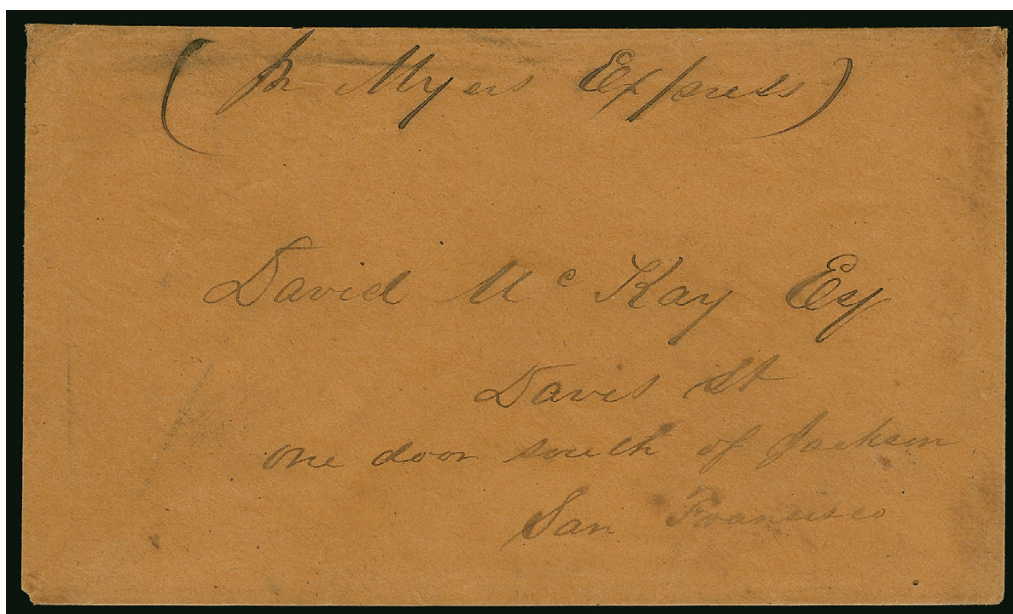 (pr Myers Express)
David Mc Kay Esq
Davis St
one door south of Jackson
San Francisco